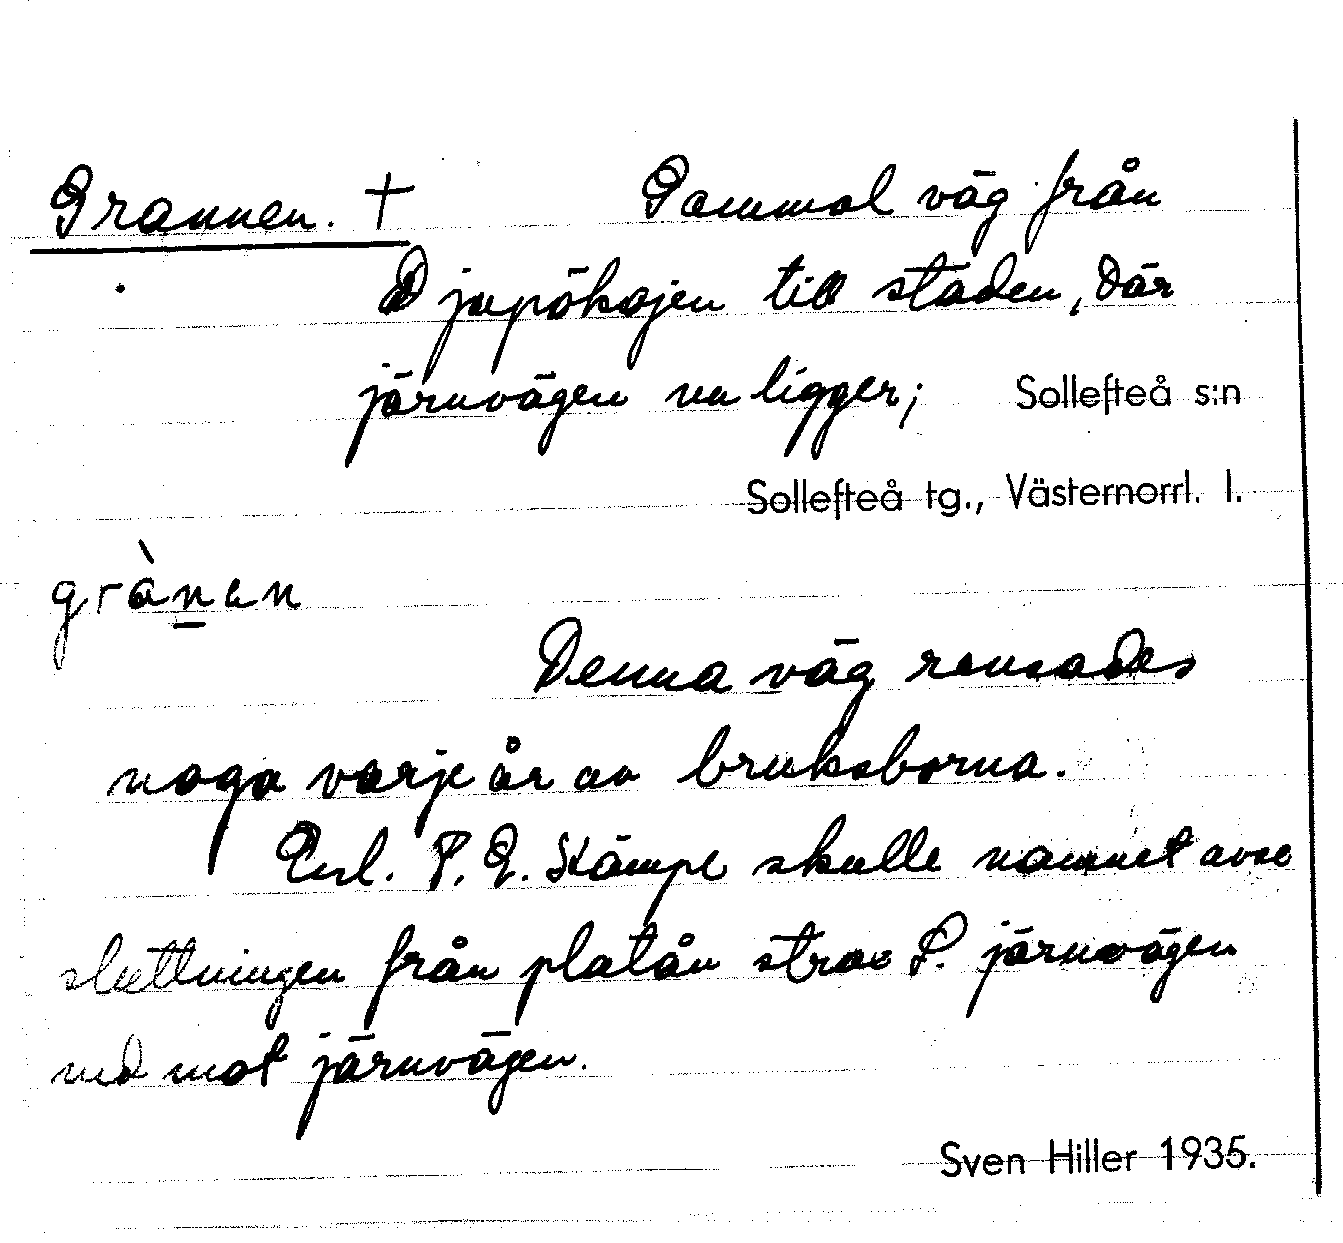 Grannen. † Gammal väg från
Djupökajen till staden, där
järnvägen nu ligger; Sollefteå s:n
Sollefteå tg., Västernorrl. l.
grànen
Denna väg rensades
noga varje år av bruksborna.
Enl. P. E. Kämpe skulle namnet avse
sluttningen från platån strax S. järnvägen
ned mot järnvägen.
Sven Hiller 1935.